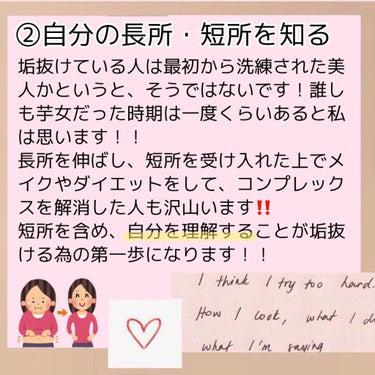 ②自分の長所・短所を知る
垢抜けている人は最初から洗練された美
人かというと、そうではないです！誰し
も芋女だった時期は一度くらいあると私
は思います！！
長所を伸ばし、短所を受け入れた上でメ
イクやダイエットをして、コンプレック
スを解消した人も沢山います‼️
短所を含め、自分を理解することが垢抜
ける為の第一歩になります！！
I think I try too hard.
How I look, what I d
what I'm saying